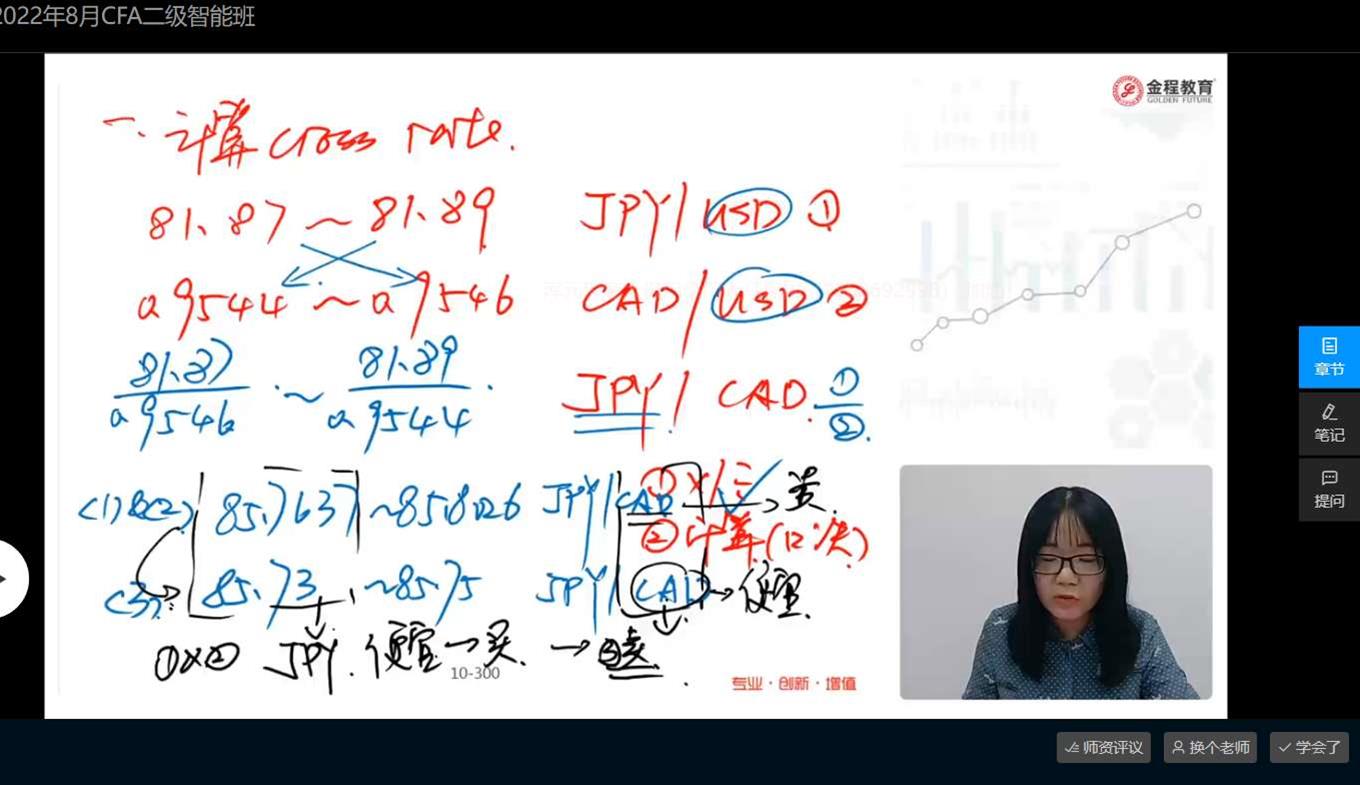 2022年8月CFA二级智能班
金程教育
GOLDEN FUTURE
一. 计算 cross rate.
81.87 ~ 81.89 JPY/USD ①
0.9544 ~ 0.9546 CAD/USD ②
81.87/0.9546 ~ 81.89/0.9544 JPY/CAD ①/②
<1>&<2> 85.7637 ~ 85.8026 JPY/CAD → 贵.
① Y/三
② 计算(12次)
<3> 85.73 ~ 85.75 JPY/CAD → 便宜.
①×② JPY. 便宜 → 买. → 卖.
10-300
专业·创新·增值
章节
笔记
提问
师资评议 换个老师 学会了